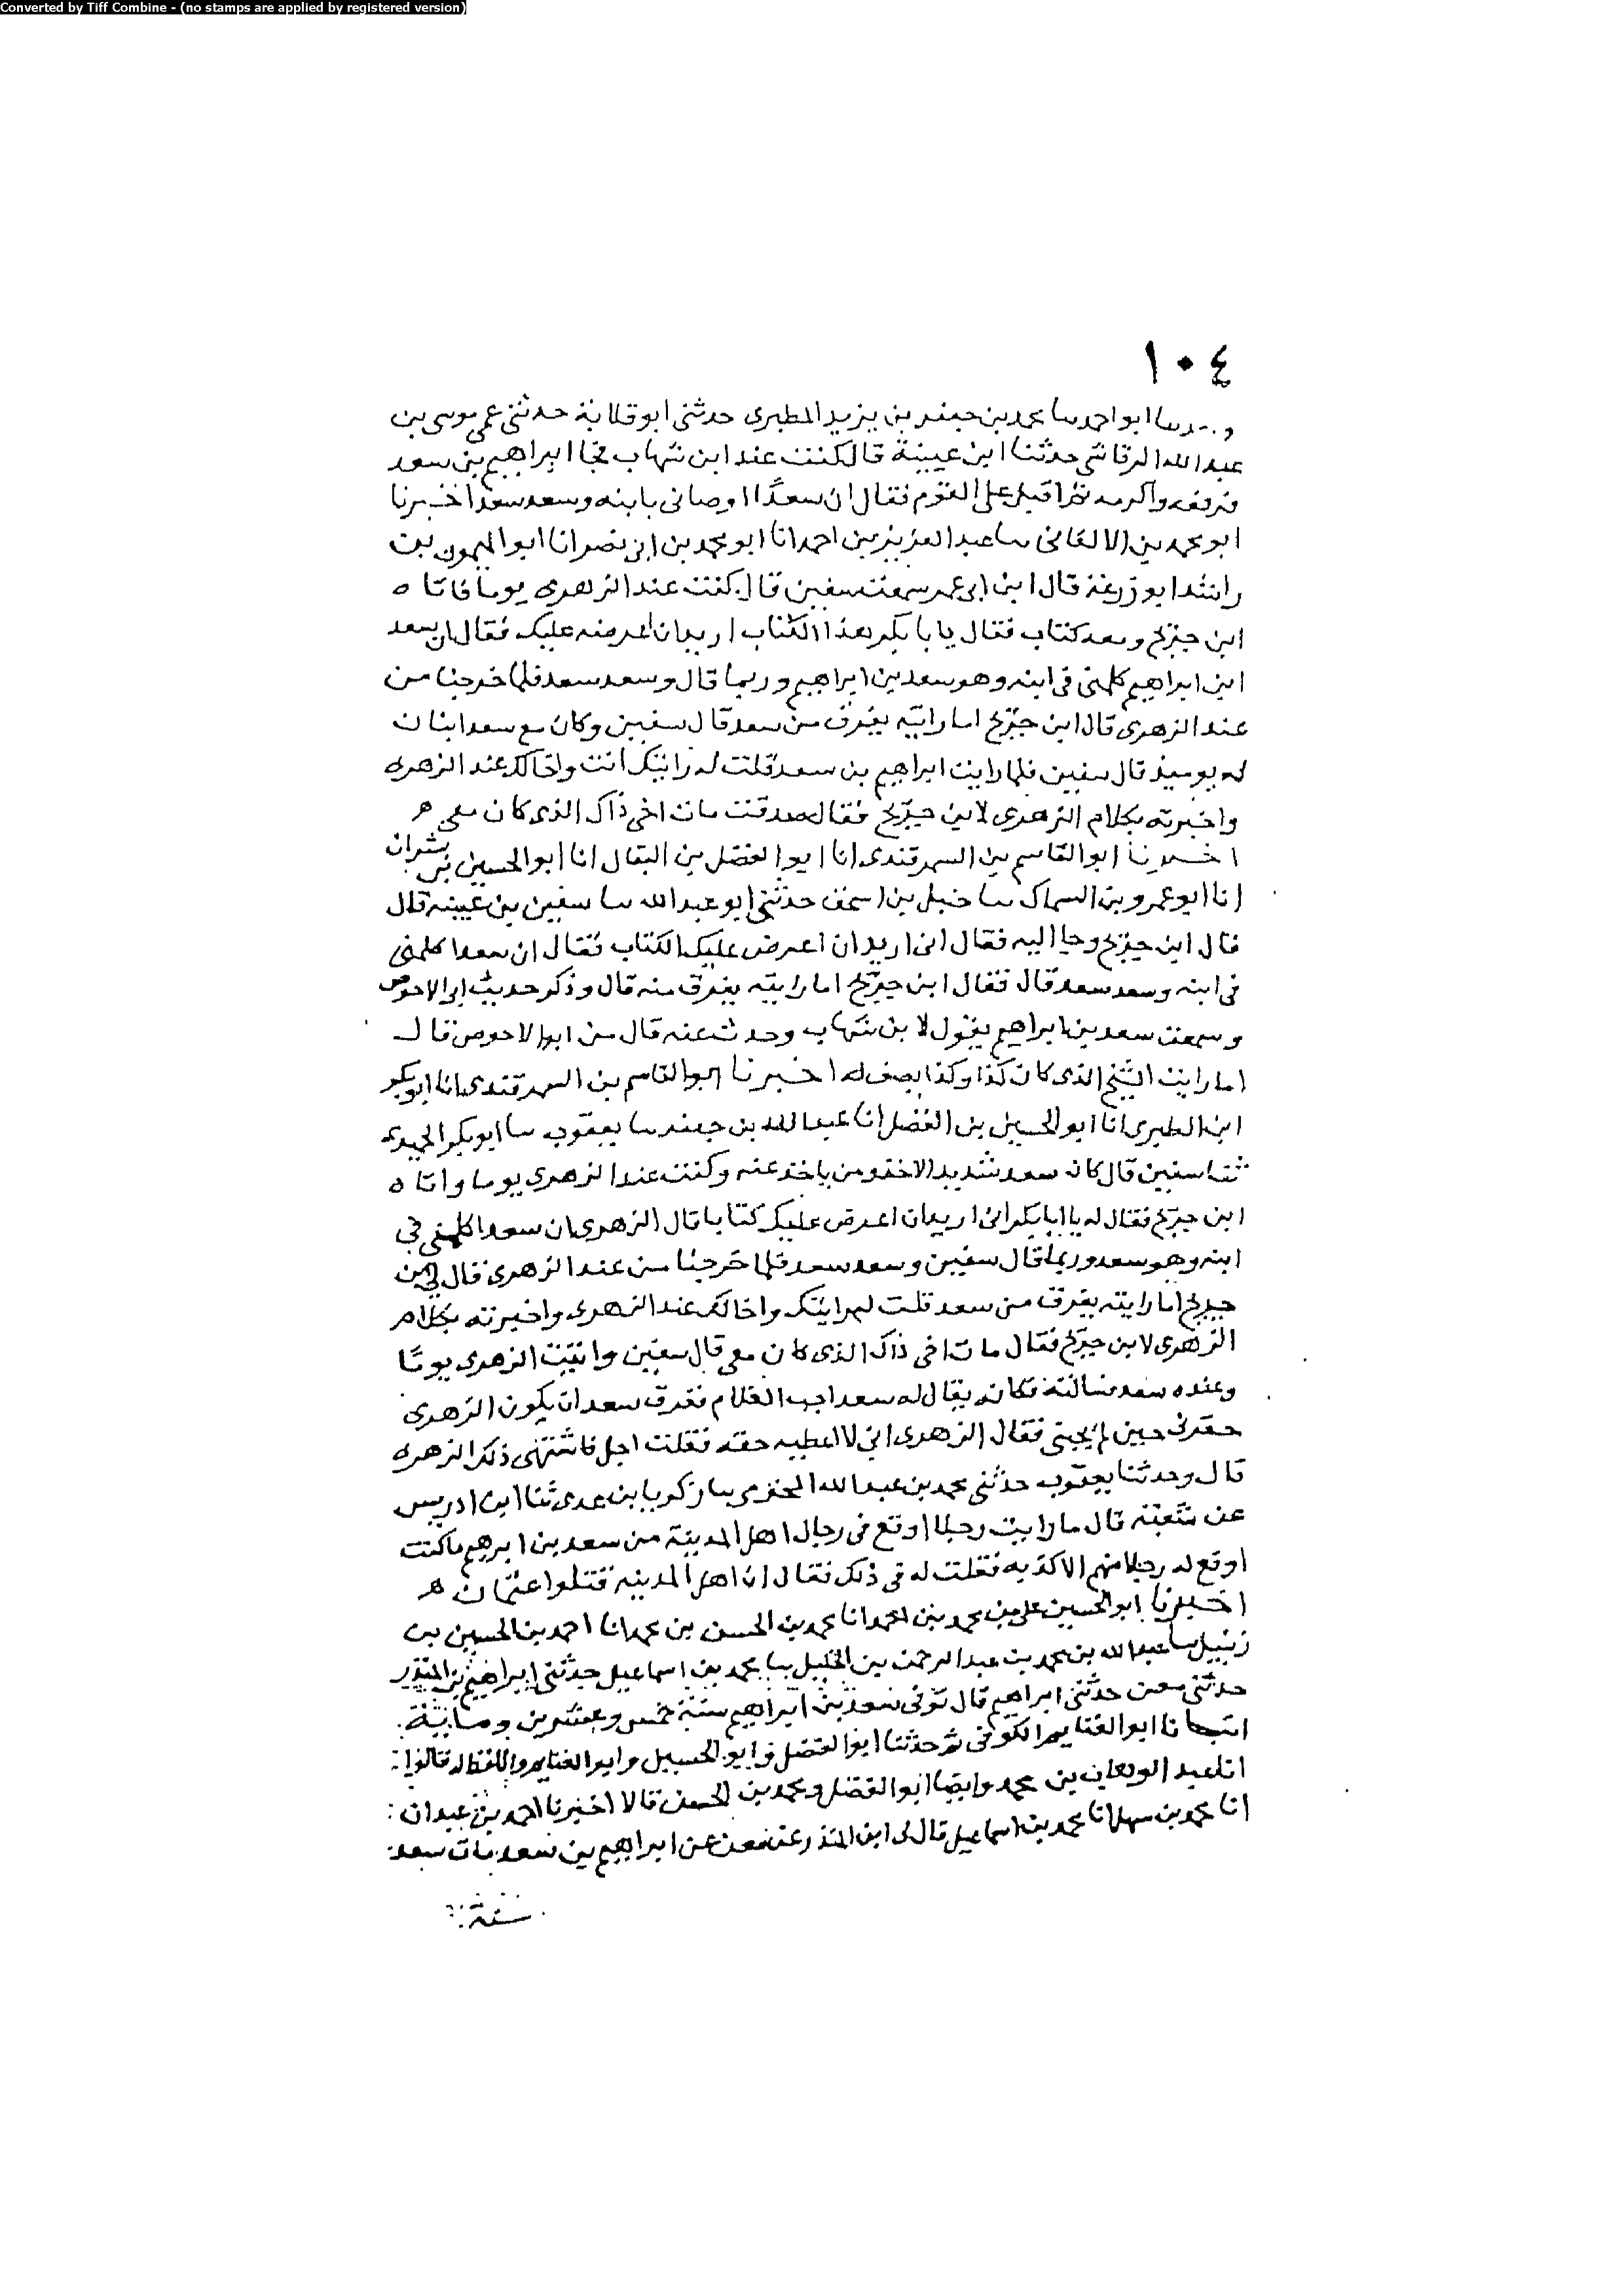 Converted by Tiff Combine - (no stamps are applied by registered version)
١٠٤
ابو احمد سا محمد بن جعفر بن يزيد المطيرى حدثنى ابو قلابة حدثنى عمى موسى بن
عبد الله الرقاشى حدثنا ابن عيينة قال كنت عند ابن شهاب فجا ابراهيم بن سعد
فرفعه واكرمه ثم اقبل على القوم فقال ان سعدًا اوصانى بابنه وسعد سعد اخبرنا
ابو محمد بن الاكفانى سا عبد العزيز بن احمد انا ابو محمد بن ابى نصر انا ابو الميمون بن
راشد ابو زرعة قال ابن ابى عمر سمعت سفين قال كنت عند الزهرى يوما فاتا ه
ابن جريج ومعه كتاب فقال يا با بكر هذا الكتاب اريد ان اعرضه عليك فقال ان سعد
ابن ابراهيم كلمنى فى ابنه وهو سعد بن ابراهيم وربما قال وسعد سعد فلما خرجنا من
عند الزهرى قال ابن جريج اما رايته يفرق من سعد قال سفين وكان مع سعد ابنان
له يوميذ قال سفين فلما رايت ابراهيم بن سعد قلت له رايتك انت واخاك عند الزهرى
واخبرته بكلام الزهرى لابن جريج فقال صدقت مات اخى ذاك الذى كان معى ه
اخبرنا ابو القاسم بن السمرقندى انا ابو الفضل بن البقال انا ابو الحسين بن بشران
انا ابو عمرو بن السماك سا حنبل بن اسحق حدثنى ابو عبد الله سا سفين بن عيينه قال
قال ابن جريج وجا اليه فقال انى اريد ان اعرض عليك الكتاب فقال ان سعدا كلمنى
فى ابنه وسعد سعد قال فقال ابن جريج اما رايته يفرق منه قال وذكر حديث ابى الاحوص
وسمعت سعد بن ابراهيم يقول لابن شهاب وحدث عنه قال من ابو الاحوص قال
اما رايت الشيخ الذى كان كذا وكذا يصف له اخبرنا ابو القاسم بن السمرقندى انا ابو بكر
ابن الطبرى انا ابو الحسين بن الفضل انا عبد الله بن جعفر سا يعقوب سا ابو بكر الحميدى
ثنا سفين قال كان سعد شديد الاخذ من ياخذ عنه وكنت عند الزهرى يوما واتا ه
ابن جريج فقال له يا ابا بكر انى اريد ان اعرض عليك كتابا قال الزهرى ان سعدا كلمنى فى
ابنه وهو سعد وربما قال سفين وسعد سعد فلما خرجنا من عند الزهرى قال لى ابن
جريج اما رايته يفرق من سعد قلت لم رايتك واخاك عند الزهرى واخبرته بكلام
الزهرى لابن جريج فقال مات اخى ذاك الذى كان معى قال سفين واتيت الزهرى يومًا
وعنده سعد فسالته فكانه يقال له سعد اجب الغلام ففرق سعد ان يكون الزهرى
حقرنى حين لم يجبنى فقال الزهرى انى لاعطيه حقه فقلت اجل فاشتهى ذلك الزهرى
قال وحدثنا يعقوب حدثنى محمد بن عبد الله المخرمى سا زكريا بن عدى ثنا ابن ادريس
عن شعبة قال ما رايت رجلا اوقع فى رجال اهل المدينة من سعد بن ابرهيم ما كنت
اوقع له رجلا منهم الا كذبه فقلت له فى ذلك فقال ان اهل المدينة قتلوا عثمان ه
اخبرنا ابو الحسين على بن محمد بن احمد انا محمد بن الحسن بن محمد انا احمد بن الحسين بن
زنبيل سا عبد الله بن محمد بن عبد الرحمن بن الخليل سا محمد بن اسماعيل حدثنى ابراهيم بن المنذر
حدثنى معن حدثنى ابراهيم قال توفى سعد بن ابراهيم سنة خمس وعشرين وماية
انبا نا ابو الغنايم الكوفى ثم حدثنا ابو الفضل نا ابو الحسين وابو الغنايم واللفظ له قالوا
انا عبد الوهاب بن محمد وايضا ابو الفضل ومحمد بن الحسن قالا اخبرنا احمد بن عبدان
انا محمد بن سهل انا محمد بن اسماعيل قال لى ابن المنذر عن معن عن ابراهيم بن سعد مات سعد
سنة